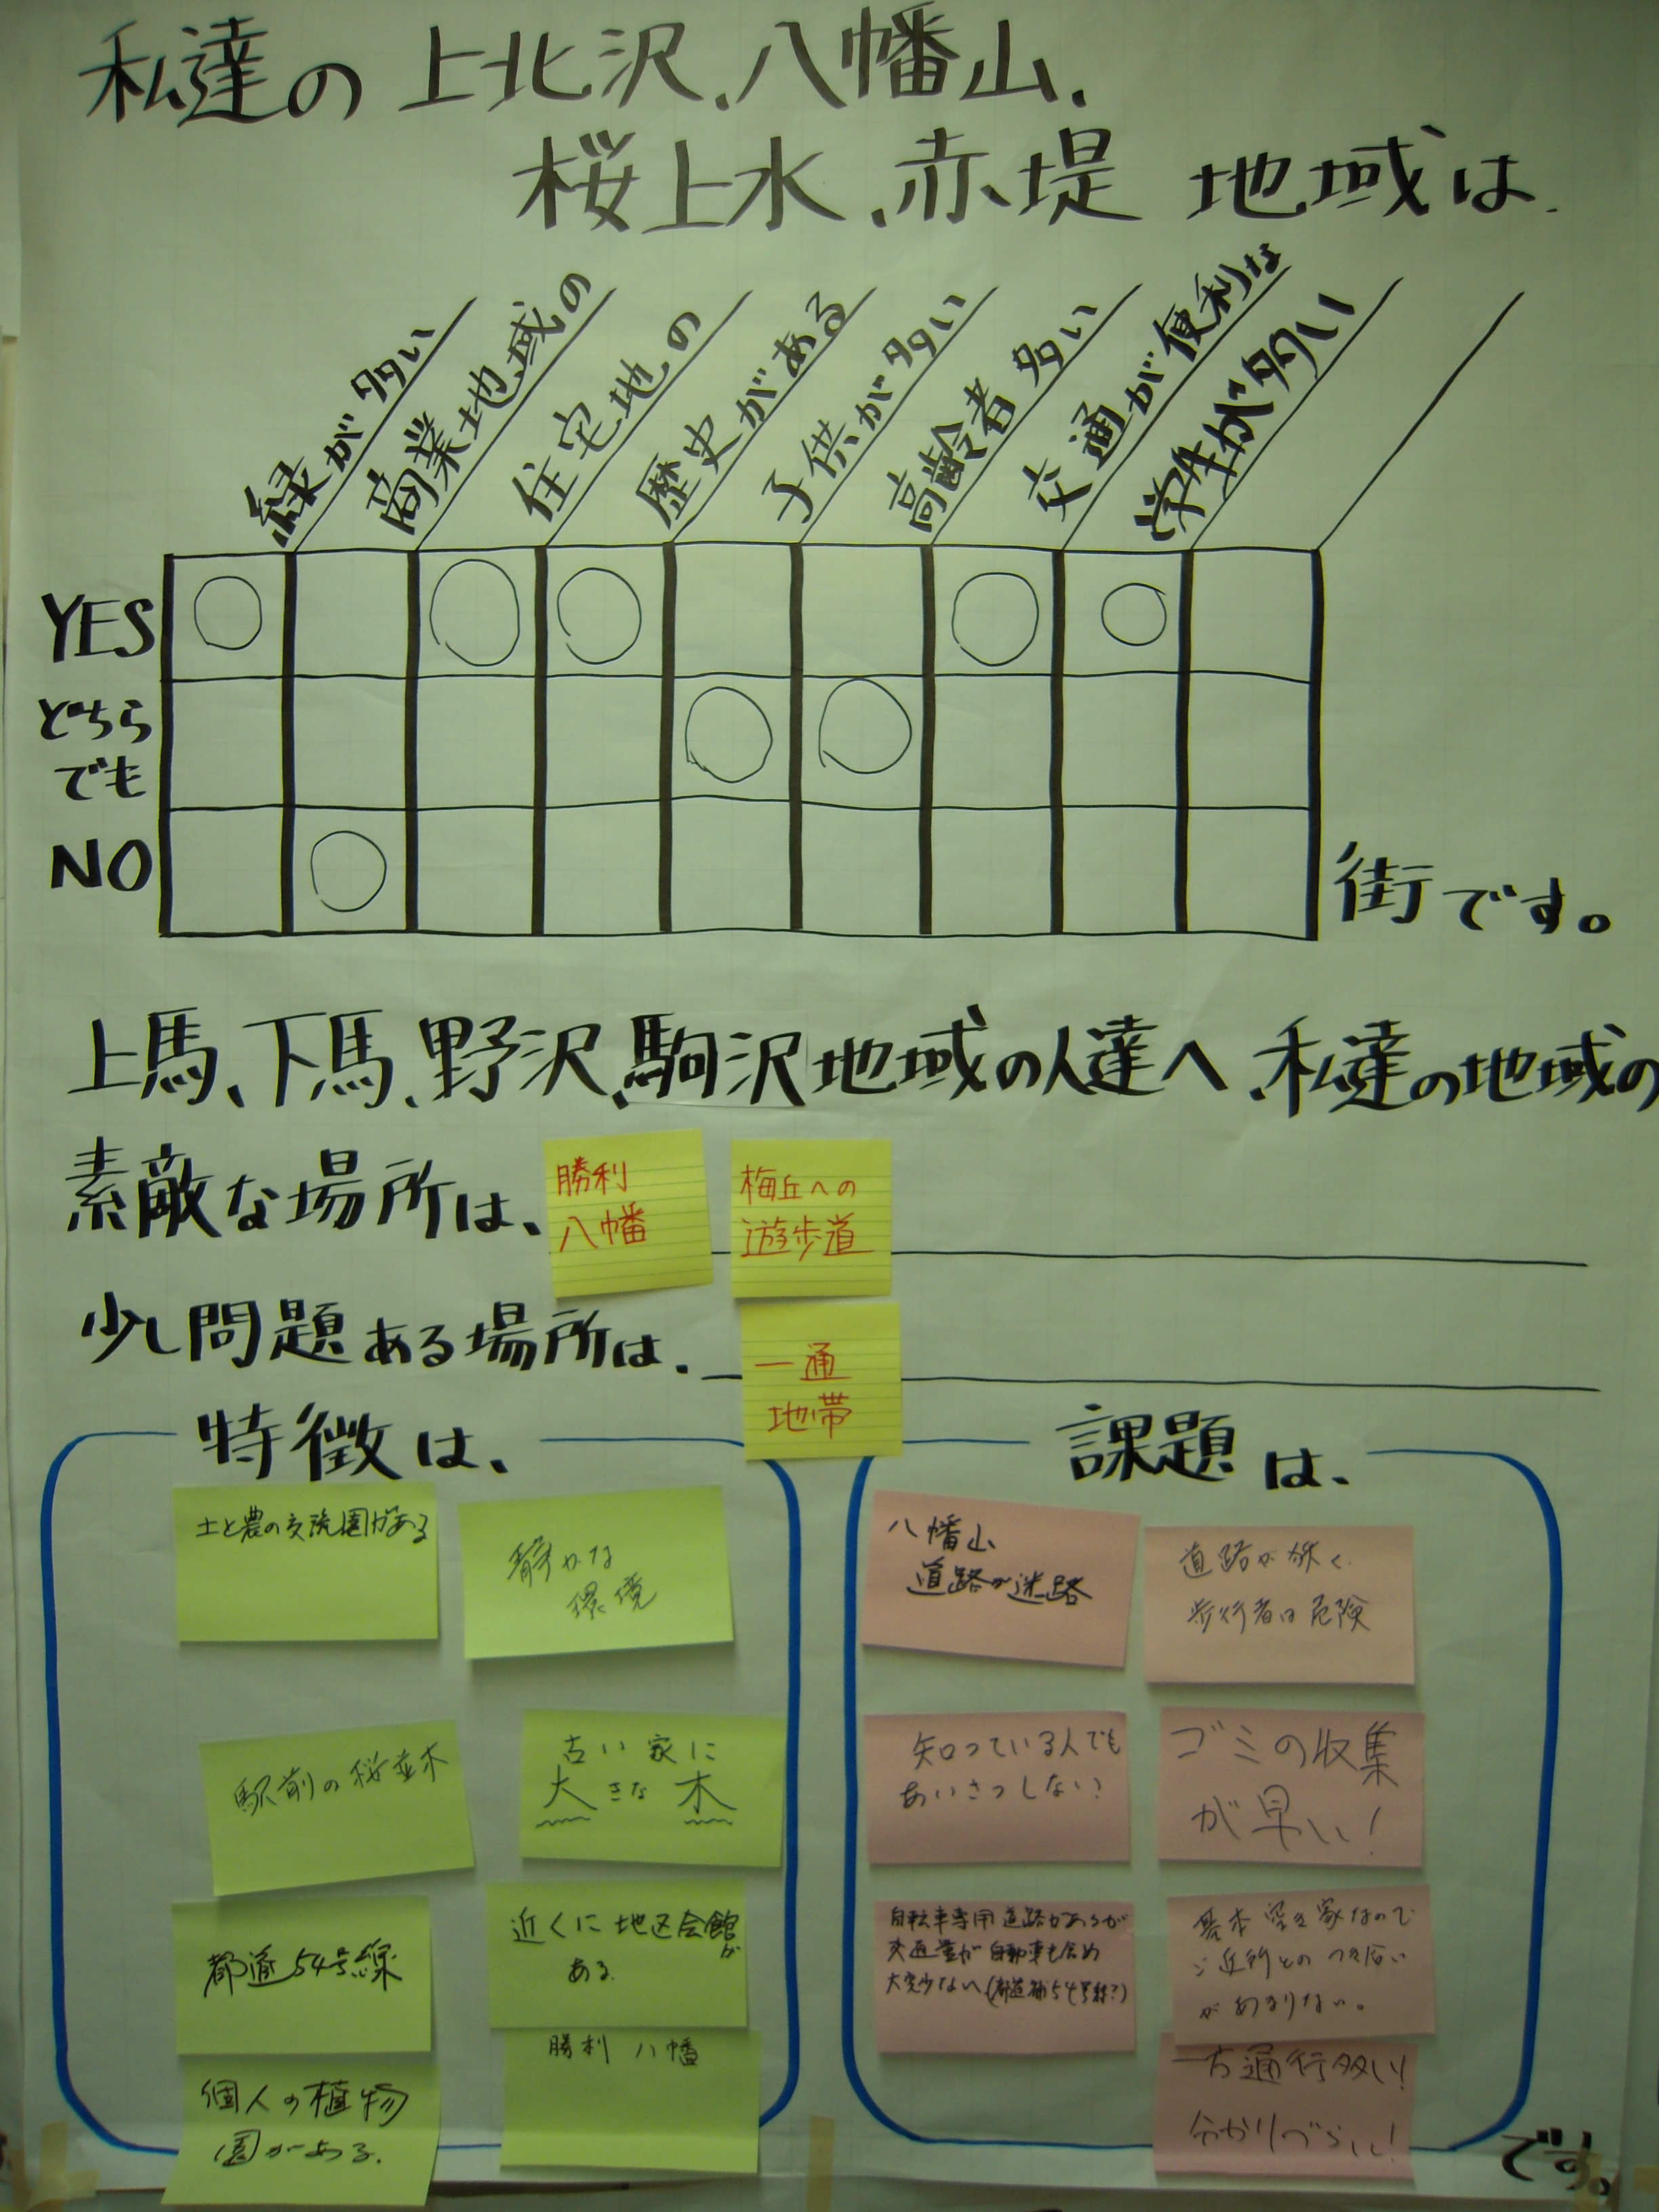 私達の上北沢、八幡山、
桜上水、赤堤 地域は、
緑が多い
商業地域の
住宅地の
歴史がある
子供が多い
高齢者多い
交通が便利な
学生が多い
YES
どちら
でも
NO
街です。
上馬、下馬、野沢、駒沢地域の人達へ、私達の地域の
素敵な場所は、
勝利
八幡
梅丘への
遊歩道
少し問題ある場所は、
一通
地帯
特徴は、
土と農の交流園がある
静かな
環境
駅前の桜並木
古い家に
大きな木
都道54号線
近くに地区会館が
ある.
個人の植物
園がある.
勝利八幡
課題は、
八幡山
道路が迷路
道路が狭く、
歩行者は危険
知っている人でも
あいさつしない?
ゴミの収集
が早い!
自転車専用道路があるが
交通量が自動車も含め
大変少ない(都道補54号線?)
基本空き家なので
ご近所とのつき合い
があまりない。
一方通行多い!
分かりづらい!
です。